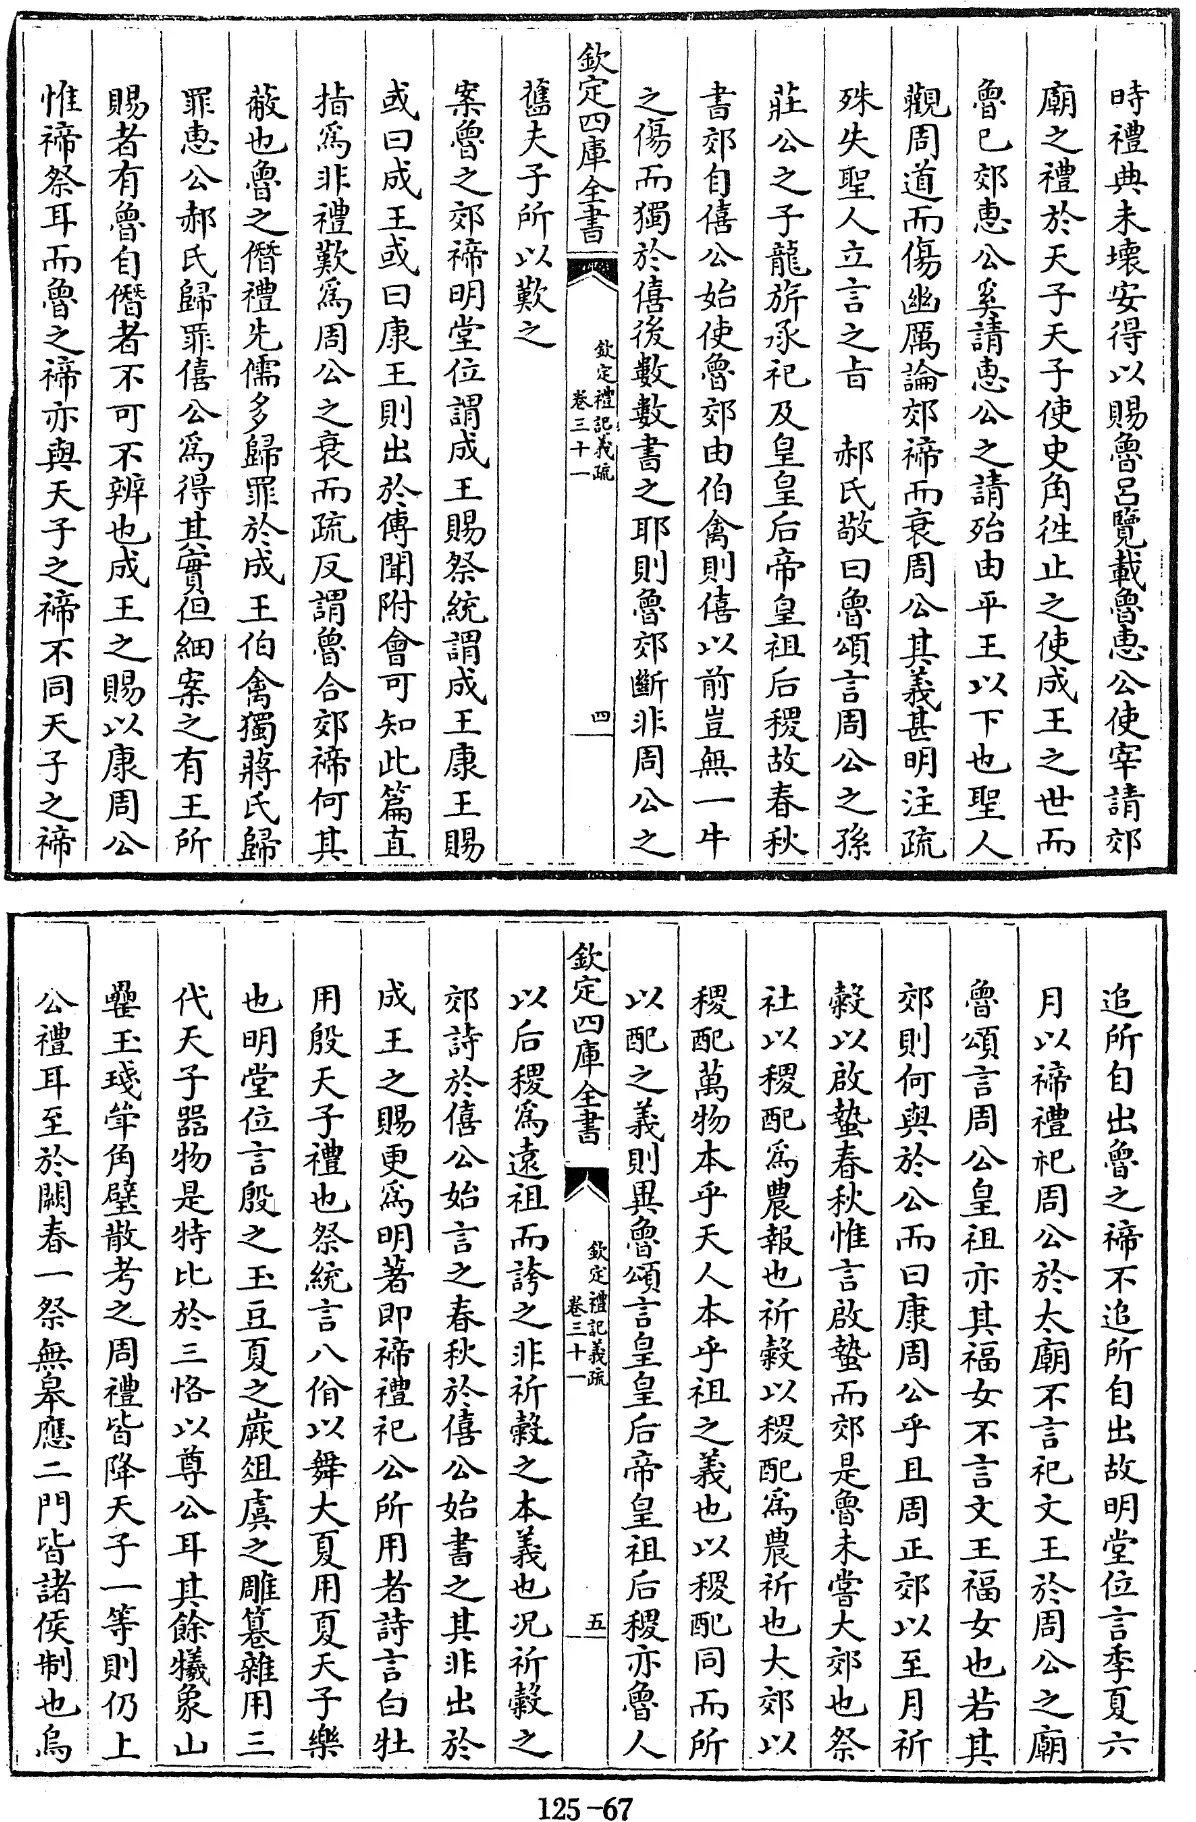 時禮典未壞安得以賜魯呂覽載魯惠公使宰請郊
廟之禮於天子天子使史角徃止之使成王之世而
魯已郊惠公奚請惠公之請殆由平王以下也聖人
觀周道而傷幽厲論郊禘而衰周公其義甚明注疏
殊失聖人立言之旨　郝氏敬曰魯頌言周公之孫
莊公之子龍旂承祀及皇皇后帝皇祖后稷故春秋
書郊自僖公始使魯郊由伯禽則僖以前豈無一牛
之傷而獨於僖後數數書之耶則魯郊斷非周公之
欽定四庫全書
欽定禮記義疏
卷三十一
四
舊夫子所以歎之
案魯之郊禘明堂位謂成王賜祭統謂成王康王賜
或曰成王或曰康王則出於傳聞附會可知此篇直
指爲非禮歎爲周公之衰而疏反謂魯合郊禘何其
蔽也魯之僭禮先儒多歸罪於成王伯禽獨蔣氏歸
罪惠公郝氏歸罪僖公爲得其實但細案之有王所
賜者有魯自僭者不可不辨也成王之賜以康周公
惟禘祭耳而魯之禘亦與天子之禘不同天子之禘
追所自出魯之禘不追所自出故明堂位言季夏六
月以禘禮祀周公於太廟不言祀文王於周公之廟
魯頌言周公皇祖亦其福女不言文王福女也若其
郊則何與於公而曰康周公乎且周正郊以至月祈
穀以啟蟄春秋惟言啟蟄而郊是魯未嘗大郊也祭
社以稷配爲農報也祈穀以稷配爲農祈也大郊以
稷配萬物本乎天人本乎祖之義也以稷配同而所
以配之義則異魯頌言皇皇后帝皇祖后稷亦魯人
欽定四庫全書
欽定禮記義疏
卷三十一
五
以后稷爲遠祖而誇之非祈穀之本義也况祈穀之
郊詩於僖公始言之春秋於僖公始書之其非出於
成王之賜更爲明著即禘禮祀公所用者詩言白牡
用殷天子禮也祭統言八佾以舞大夏用夏天子樂
也明堂位言殷之玉豆夏之嶡俎虞之雕篹雜用三
代天子器物是特比於三恪以尊公耳其餘犧象山
罍玉琖斚角璧散考之周禮皆降天子一等則仍上
公禮耳至於闕春一祭無臯應二門皆諸侯制也烏
125-67